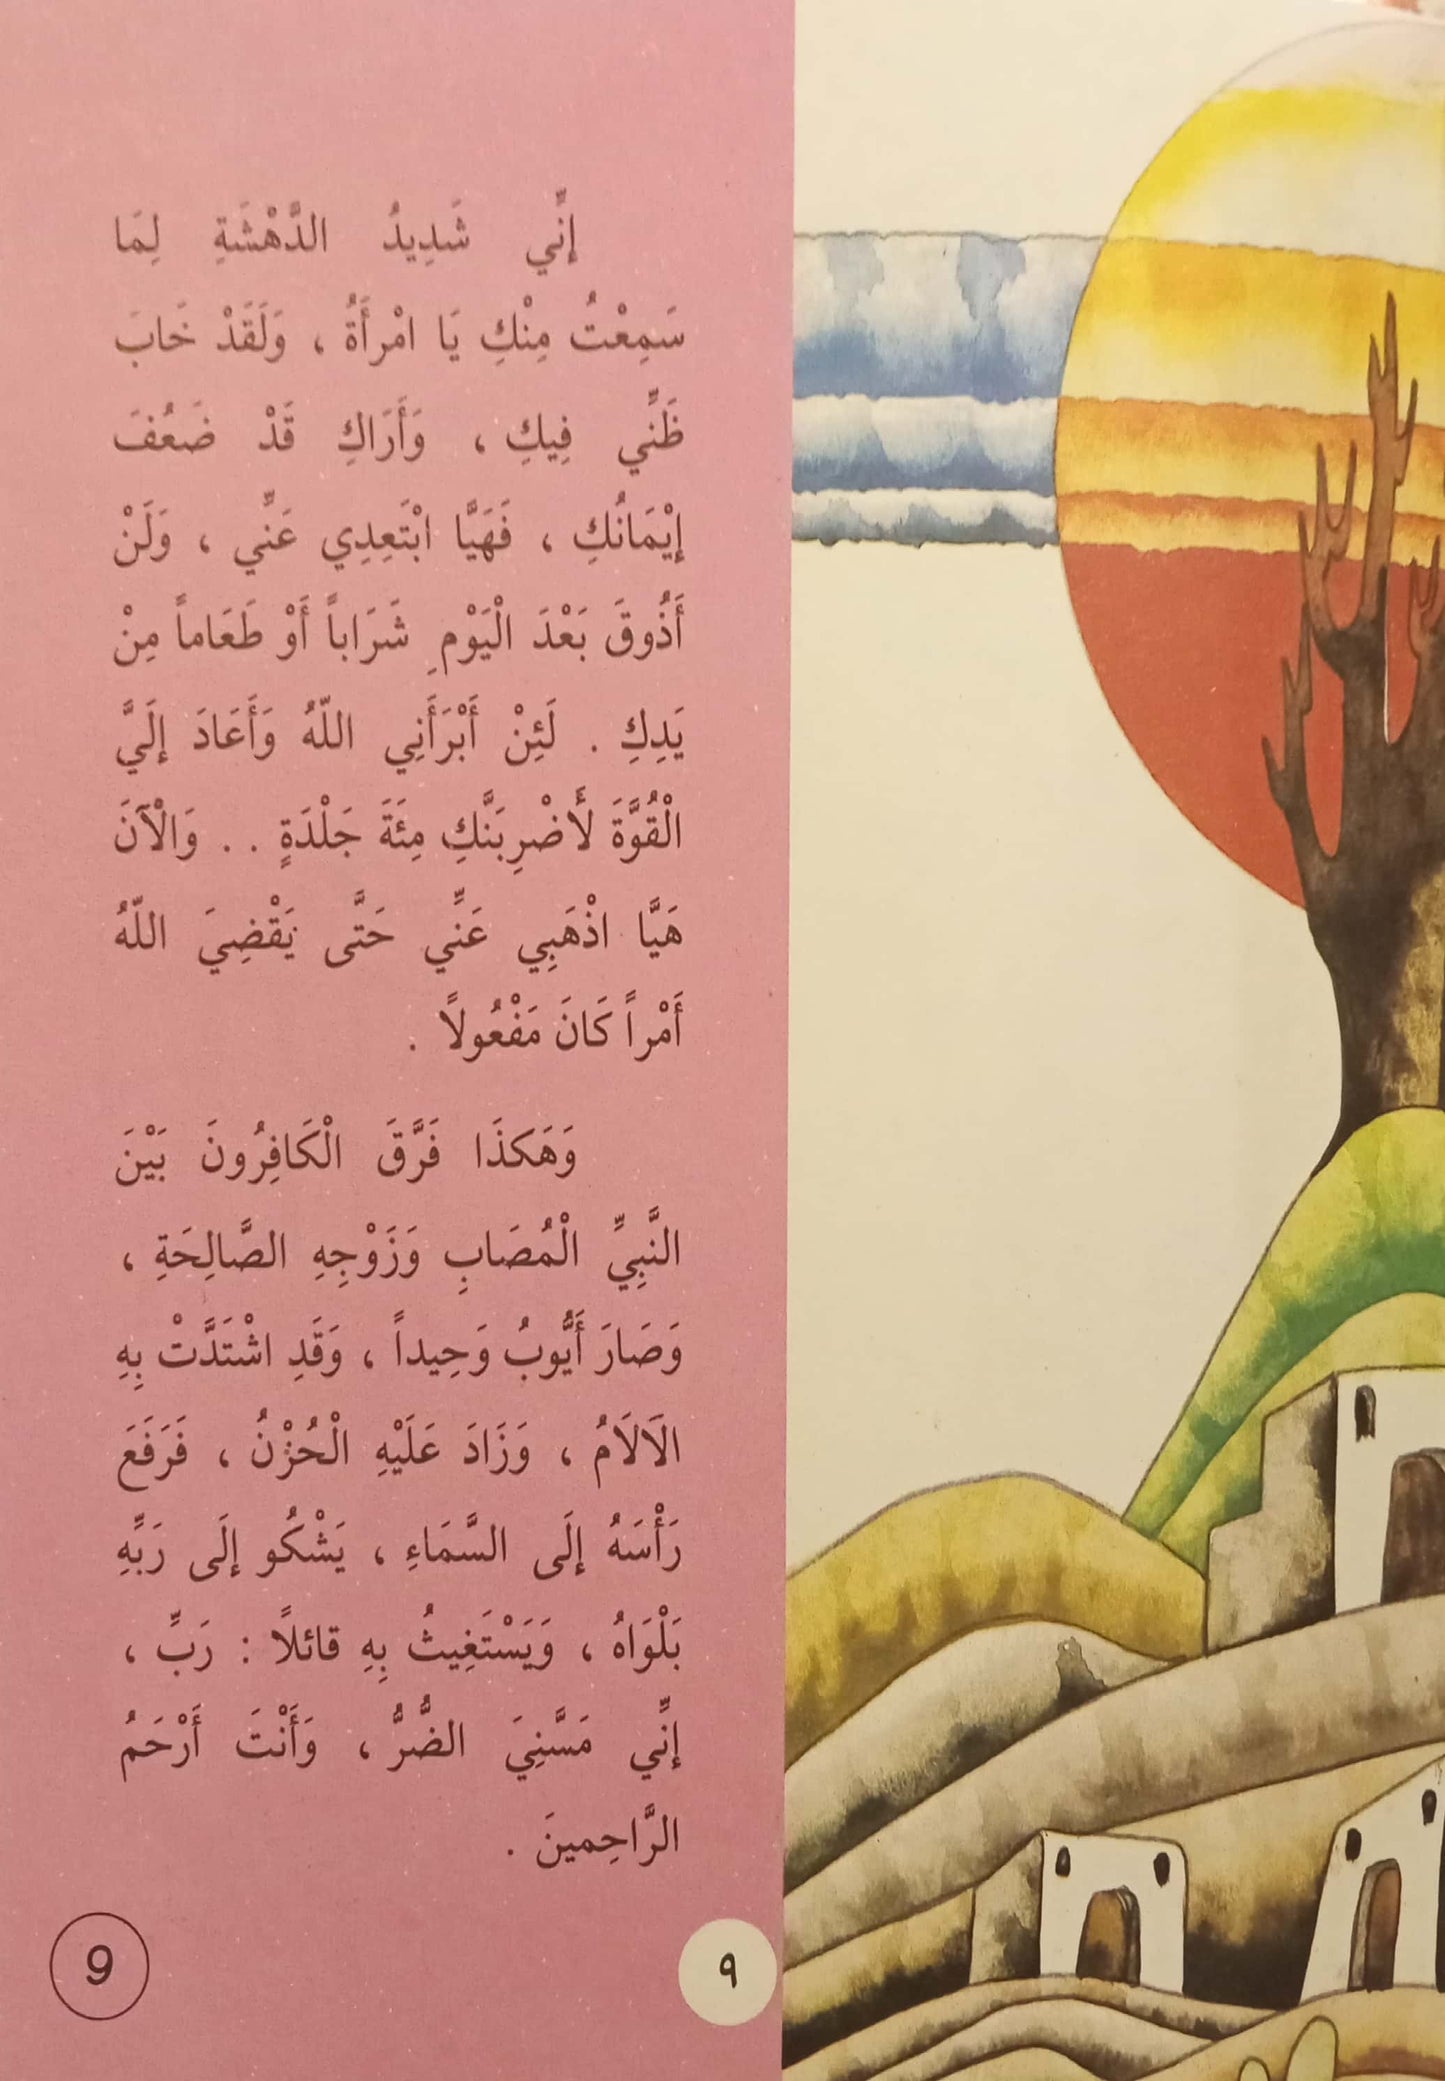 إِنِّي شَدِيدُ الدَّهْشَةِ لِمَا
سَمِعْتُ مِنْكِ يَا امْرأَةُ ، وَلَقَدْ خَابَ
ظَنِّي فِيكِ ، وَأَرَاكِ قَدْ ضَعُفَ
إِيْمَانُكِ ، فَهَيَّا ابْتَعِدِي عَنِّي ، وَلَنْ
أَذُوقَ بَعْدَ الْيَوْمِ شَرَاباً أَوْ طَعَاماً مِنْ
يَدِكِ . لَئِنْ أَبْرَأَنِي اللّهُ وَأَعَادَ إِلَيَّ
الْقُوَّةَ لأَضْرِبَنَّكِ مِئَةَ جَلْدَةٍ . . وَالْآنَ
هَيَّا اذْهَبِي عَنِّي حَتَّى يَقْضِيَ اللّهُ
أَمْراً كَانَ مَفْعُولاً .
وَهَكذَا فَرَّقَ الْكَافِرُونَ بَيْنَ
النَّبِيِّ الْمُصَابِ وَزَوْجِهِ الصَّالِحَةِ ،
وَصَارَ أَيُّوبُ وَحِيداً ، وَقَدِ اشْتَدَّتْ بِهِ
الَالَامُ ، وَزَادَ عَلَيْهِ الْحُزْنُ ، فَرَفَعَ
رَأْسَهُ إِلَى السَّمَاءِ ، يَشْكُو إِلَى رَبِّهِ
بَلْوَاهُ ، وَيَسْتَغِيثُ بِهِ قائلاً : رَبِّ ،
إِنِّي مَسَّنِيَ الضُّرُّ ، وَأَنْتَ أَرْحَمُ
الرَّاحِمينَ .
٩
9